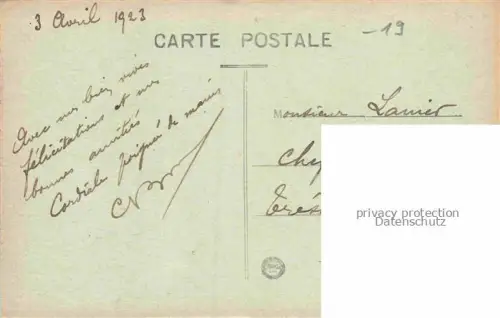 3 Avril 1923
-19
CARTE POSTALE
Avec mes bien vives
félicitations et mes
bonnes amitiés
Cordiale poignée de mains
Monsieur Lanier
privacy protection
Datenschutz